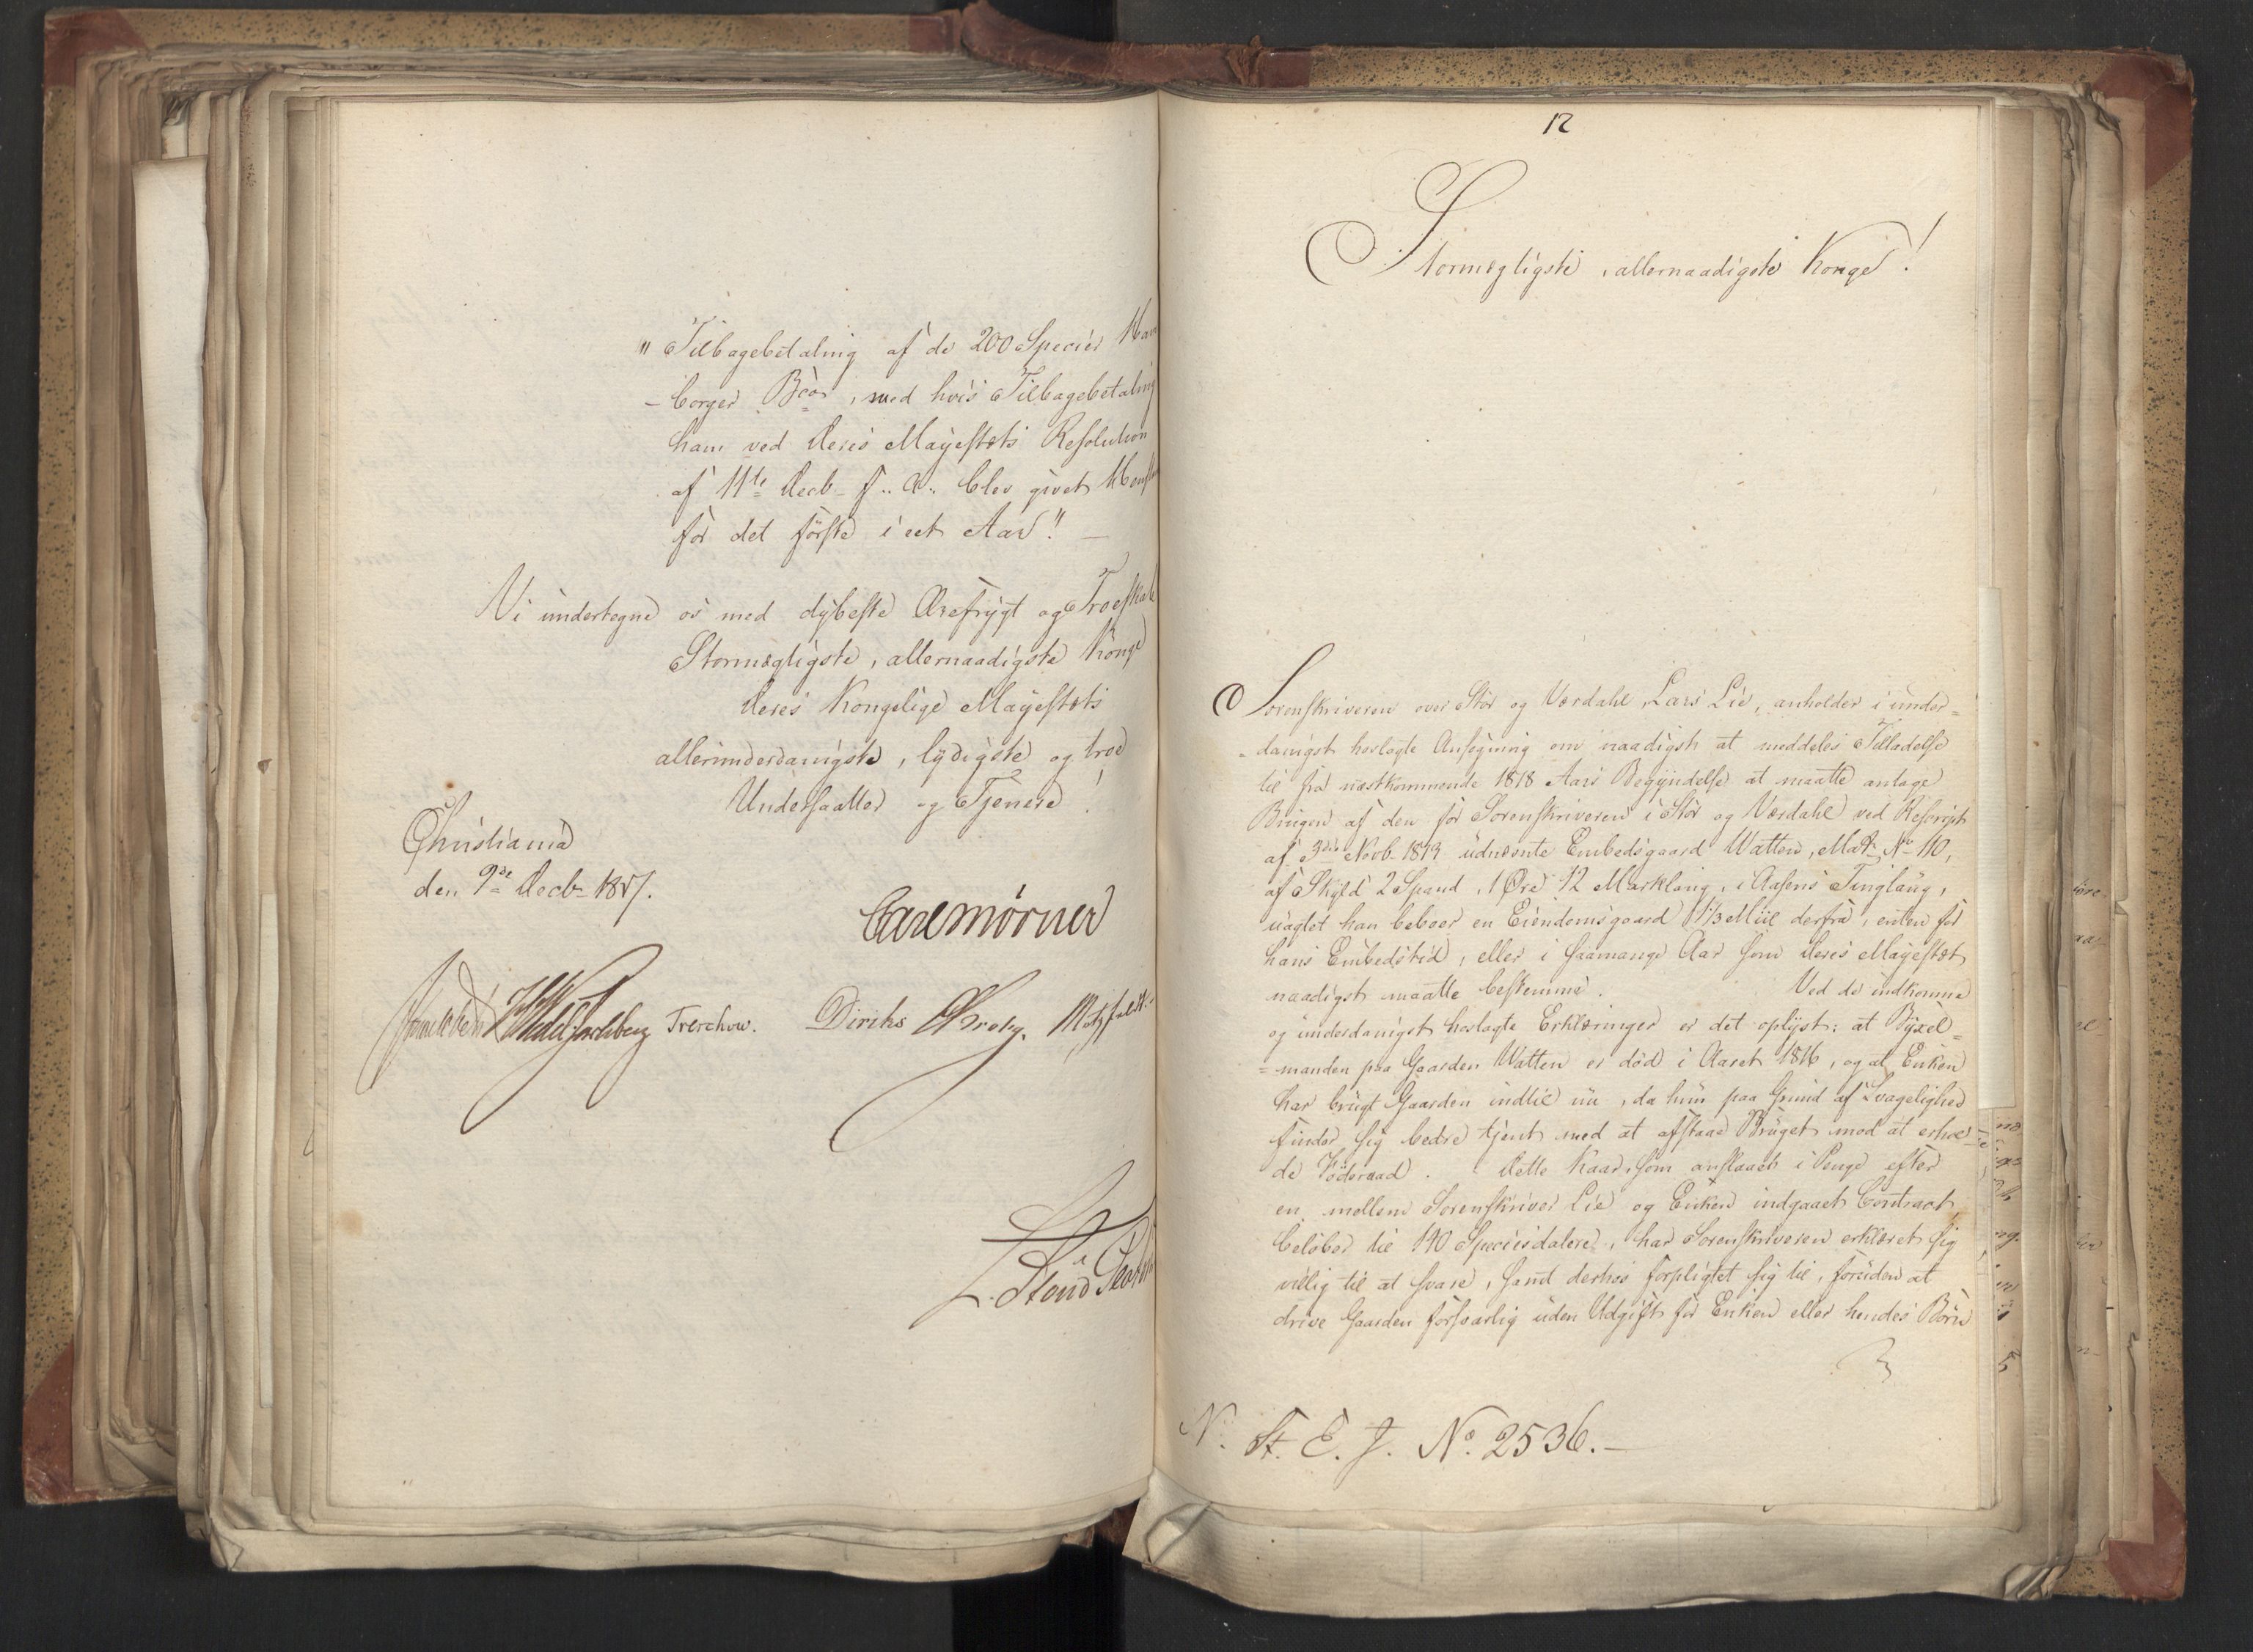 "Tilbagebetaling af de 200 Species Ham
-borger Bco, med hvis Tilbagebetaling
ham ved Deres Mayestets Resolution
af 11te Decb. f. A. blev givet Henst
for det förste i eet Aar". —
Vi undertegne os med dybeste Ærefrygt og Troeskab
Stormægtigste, allernaadigste Konge
Deres Kongelige Mayestæts
allerunderdanigste, lydigste og troe
Undersaatter og Tjenere!
Christiania
den 9de Decb. 1817.
Carl Mörner
Sommerhielm Wedel Jarlsberg Treschow. Diriks Krog. Motzfeldt
12
Stormægtigste, allernaadigste Konge!
Sorenskriveren over Stör og Værdahl, Lars Lie, anholder i under=
=danigst hoslagte Ansøgning om naadigst at meddeles Tilladelse
til fra næstkommende 1818 Aars Begyndelse at maatte antage
Brugen af den for Sorenskriveren i Stör og Værdahl ved Rescript
af 3die Novb. 1813 udnævnte Embedsgaard Watten, Mat. No 110,
af Skyld 2 Spand, 1 Øre 12 Marklaug, i Aasens Tinglaug,
uagtet han beboer en Eiendomsgaard 1 1/3 Miil derfra, enten for
hans Embedstid, eller i saamange Aar som Deres Mayestæt
naadigst maatte bestemme. Ved de indkomne
og underdanigst hoslagte Erklæringer er det oplyst: at Byxel=
=manden paa Gaarden Watten er död i Aaret 1816, og at Enken
har brugt Gaarden indtil nu, da hun paa Grund af Svagelighed
finder sig bedre tjent med at afstaae Bruget mod at erhol=
de Föderaad. Dette Kaar, som anslaaet i Penge efter
en mellem Sorenskriver Lie og Enken indgaaet Contract
belöber til 140 Speciesdalere, har Sorenskriveren erklæret sig
villig til at svare, samt derhos forpligtet sig til, foruden at
drive Gaarden forsvarlig uden Udgift for Enken eller hendes Börn
N. St. E. J. No. 2536. —